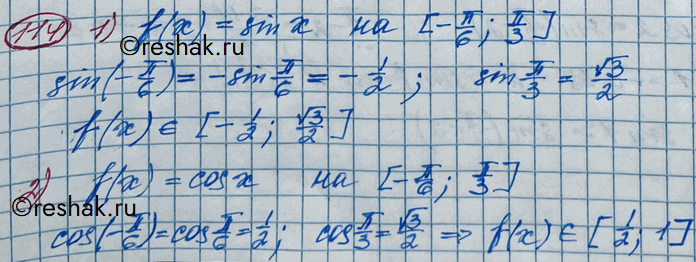 114 1) f(x) = sin x на [-π/6; π/3]
©reshak.ru
sin(-π/6) = -sin π/6 = -1/2; sin π/3 = √3/2
f(x) ∈ [-1/2; √3/2]
2) f(x) = cos x на [-π/6; π/3]
©reshak.ru
cos(-π/6) = cos π/6 = 1/2; cos π/3 = √3/2 ⇒ f(x) ∈ [1/2; 1]